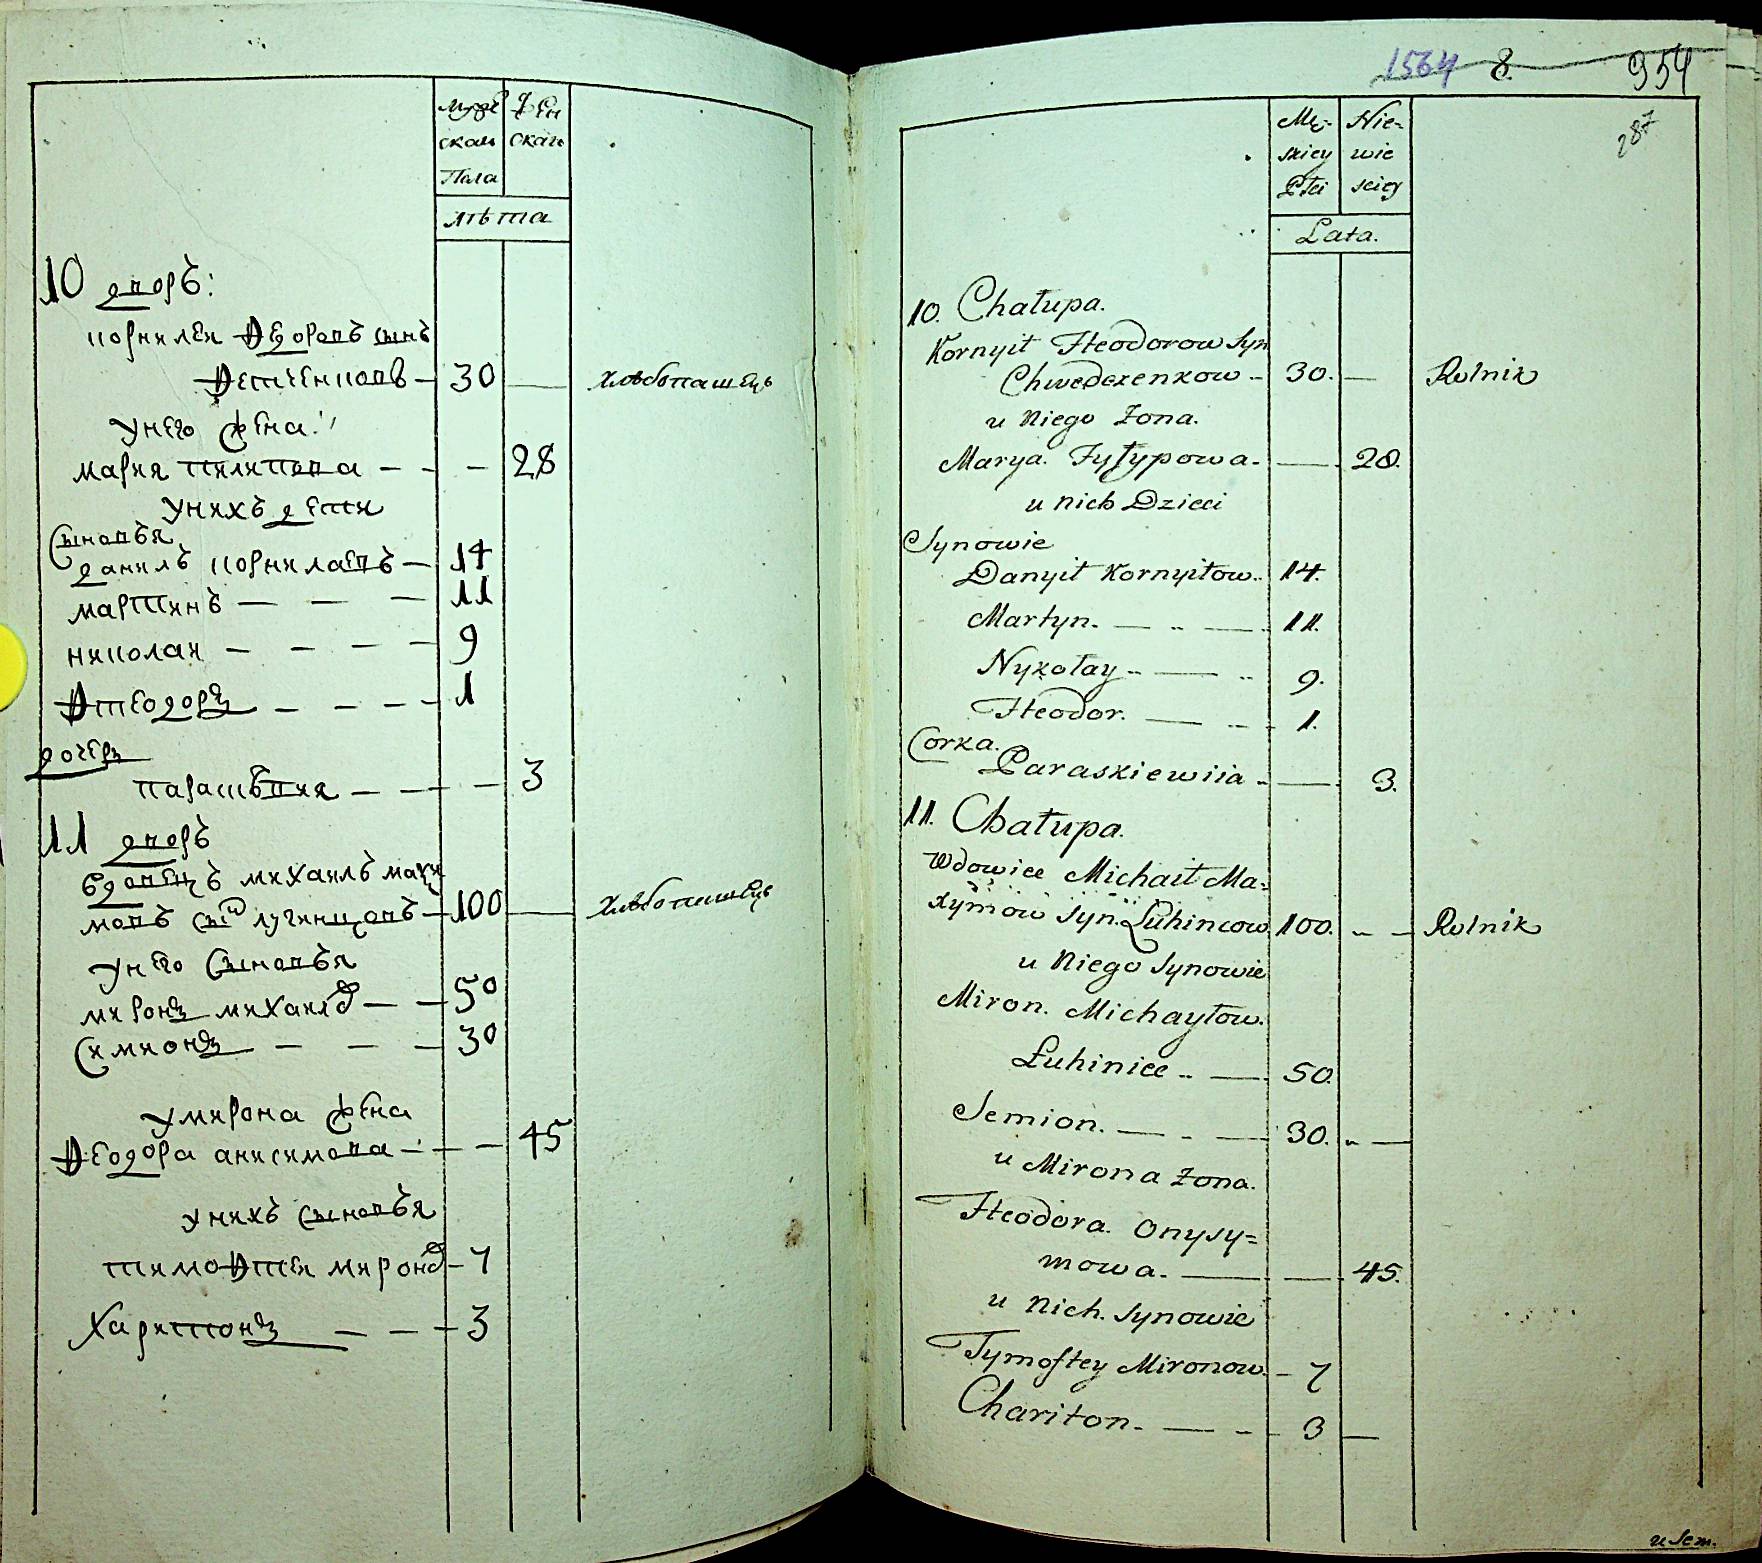 Муже
Жен
ская
ская
Пола
Лѣта
10 дворъ:
корнилеи Ѳедоровъ сынъ
Ѳетченковъ — 30 — хлѣбопашецъ
унего жена
мария Пилипова — — — 28
унихъ дети
Сыновья
данилъ корниловъ — 14
мартинъ — — — 11
николаи — — — — 9
Ѳтеодоръ — — — — 1
дочерь
парасъвия — — — 3
11 дворъ
вдовецъ михаилъ макси
мовъ сынъ лугинцовъ — 100 — хлѣбопашецъ
унего Сыновья
миронъ михаило — — 50
Симионъ — — — 30
умирона жена
Ѳеодора анисимова — — — 45
унихъ сыновья
тимоѲтеи мироно — 7
Харитонъ — — — 3
1564 8. 954
287
Mę-
Nie-
skiey
wie
Płci
sciey
Lata.
10. Chałupa.
Kornyił Fteodorow Syn
Chwedczenkow - 30. — Rolnik
u Niego Żona.
Marya. Fyłypowa. — 28.
u nich Dzieci
Synowie
Danyił Kornyiłow.. 14.
Martyn. — .. — 11.
Nykołay .. — .. 9.
Fteodor. — .. 1.
Corka.
Paraskiewiia .. — 3.
11. Chałupa.
Wdowiec Michaił Ma-
xymow Syn. Łuhincow 100. .. — Rolnik
u Niego Synowie
Miron. Michayłow.
Łuhiniec .. — 50.
Semion. — .. — 30. .. —
u Mirona Żona.
Fteodora. Onysy=
mowa. — — 45.
u Nich. Synowie
Tymoftey Mironow. - 7
Chariton. — - - 3 —
u Sem.